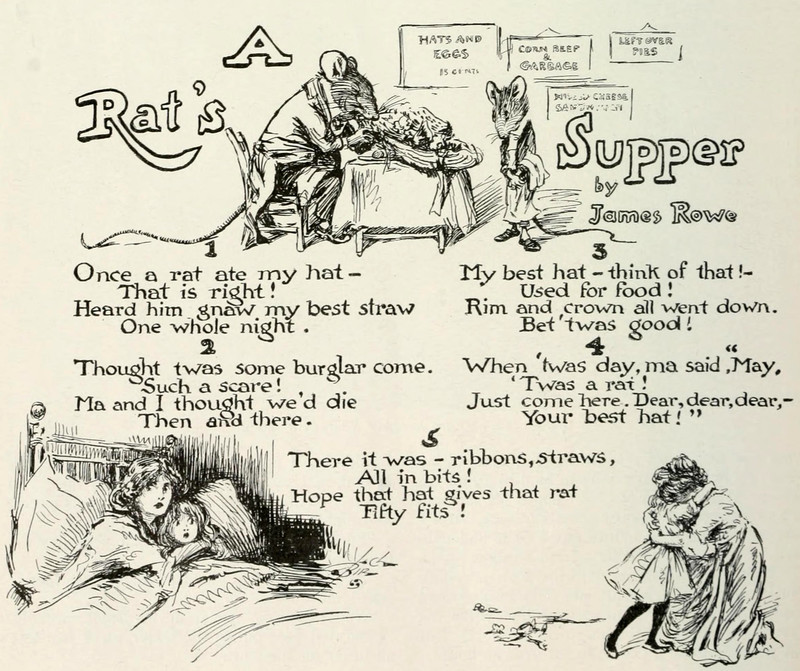 A
Rat's
Supper
by
James Rowe
HATS AND
EGGS
15 CENTS
CORN BEEF
&
GARBAGE
LEFT OVER
PIES
CHEESE
1
Once a rat ate my hat –
That is right!
Heard him gnaw my best straw
One whole night .
2
Thought twas some burglar come.
Such a scare!
Ma and I thought we'd die
Then and there.
3
My best hat – think of that!–
Used for food!
Rim and crown all went down.
Bet 'twas good!
4
When 'twas day, ma said, "May,
'Twas a rat!
Just come here. Dear, dear, dear,–
Your best hat!"
5
There it was – ribbons, straws,
All in bits!
Hope that hat gives that rat
Fifty fits!